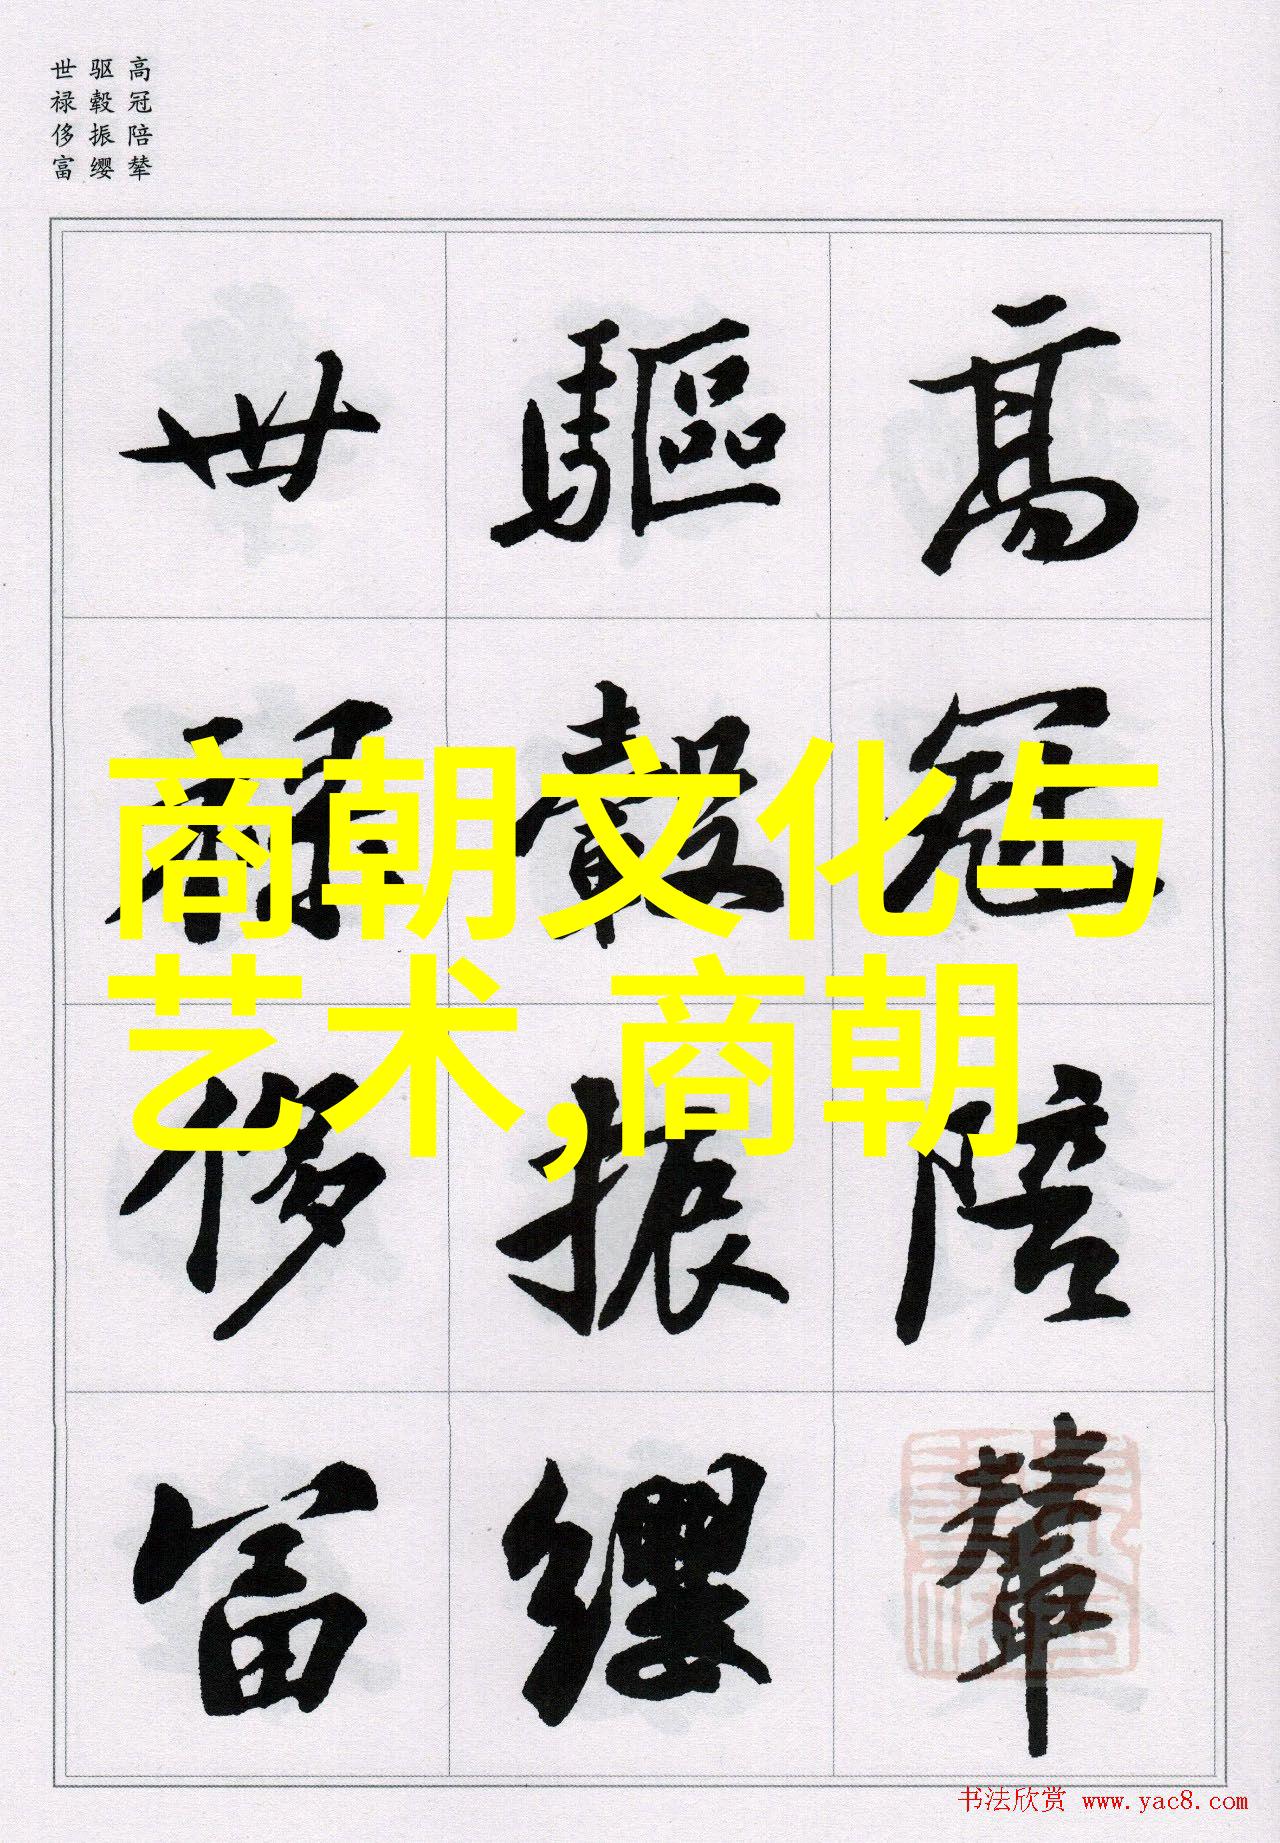 高冠陪辇
驱毂振缨
世禄侈富
高冠陪輦
驅轂振纓
世祿侈富
商朝文化与
艺术,商朝
书法欣赏 www.yac8.com